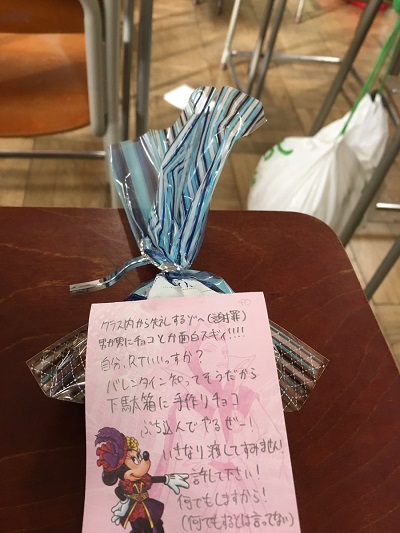 クラス内から失礼するゾ～(謝罪)
男が男にチョコとか面白スギィ!!!!
自分、Rていいっすか?
バレンタイン知ってそうだから
下駄箱に手作りチョコ
ぶち込んでやるぜー!
いきなり渡してすみません!
許して下さい!
何でもしますから!
(何でもするとは言ってない)